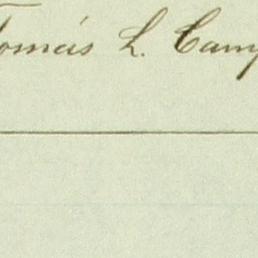 Tomás L. Camp